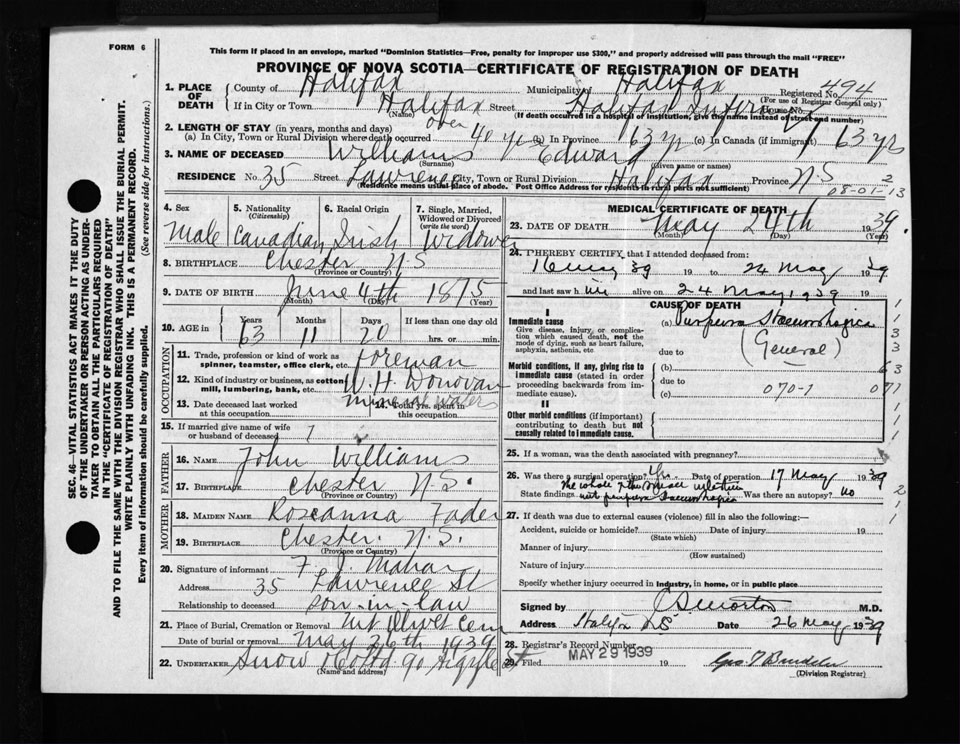 FORM 6
This form if placed in an envelope, marked "Dominion Statistics—Free, penalty for improper use $300," and properly addressed will pass through the mail "FREE"
PROVINCE OF NOVA SCOTIA—CERTIFICATE OF REGISTRATION OF DEATH
1. PLACE OF DEATH County of Halifax Municipality of Halifax Registered No. 494
(For use of Registrar General only)
If in City or Town Halifax Street Halifax House No.
(Name) (If death occurred in a hospital or institution, give name instead of street and number)
2. LENGTH OF STAY (in years, months and days)
(a) In City, Town or Rural Division where death occurred over 40 yrs (b) In Province 63 yr (c) In Canada (if immigrant) 63 yrs
3. NAME OF DECEASED Williams Edward
(Surname) (Given name or names)
RESIDENCE No. 35 Street Lawrence City, Town or Rural Division Halifax Province N.S 2
(Residence means usual place of abode. Post Office Address for residents in rural parts not sufficient)
08-01-13
4. Sex 5. Nationality (Citizenship) 6. Racial Origin 7. Single, Married, Widowed or Divorced (write the word)
Male Canadian Irish Widower
8. BIRTHPLACE Chester N.S
(Province or Country)
9. DATE OF BIRTH June 4th 1875
(Month) (Day) (Year)
10. AGE in Years Months Days If less than one day
63 11 20 hrs. or min.
OCCUPATION
11. Trade, profession or kind of work as spinner, teamster, office clerk, etc. foreman
12. Kind of industry or business, as cotton mill, lumbering, bank, etc. W.H. Donovan
mineral waters
13. Date deceased last worked at this occupation 14. Total yrs. spent in this occupation
15. If married give name of wife or husband of deceased
FATHER
16. NAME John Williams
17. BIRTHPLACE Chester N.S.
(Province or Country)
MOTHER
18. MAIDEN NAME Roseanna Fader
19. BIRTHPLACE Chester. N.S.
(Province or Country)
20. Signature of informant F. J. Mahar
Address 35 Lawrence St
Relationship to deceased son-in-law
21. Place of Burial, Cremation or Removal Mt Olivet Cem
Date of burial or removal May 26th 1939
22. UNDERTAKER Snow & Co Ltd 90 Argyle St
(Name and address)
MEDICAL CERTIFICATE OF DEATH
23. DATE OF DEATH May 24th 1939.
(Month) (Day) (Year)
24. I HEREBY CERTIFY that I attended deceased from:
16 May 39 19 to 24 May 1939
and last saw h im alive on 24 May 1939 19
CAUSE OF DEATH
I
Immediate cause (a) Purpura Haemorrhagica
Give disease, injury, or complication which caused death, not the mode of dying, such as heart failure, asphyxia, asthenia, etc
due to (General)
Morbid conditions, if any, giving rise to immediate cause (stated in order proceeding backwards from immediate cause).
(b)
due to 070-1
(c)
II
Other morbid conditions (if important) contributing to death but not causally related to immediate cause.
25. If a woman, was the death associated with pregnancy?
26. Was there a surgical operation? Yes. Date of operation 17 May 1939
State findings not purpura Haemorrhagica Was there an autopsy? No
27. If death was due to external causes (violence) fill in also the following:—
Accident, suicide or homicide? Date of injury 19
(State which)
Manner of injury
(How sustained)
Nature of injury
Specify whether injury occurred in industry, in home, or in public place
Signed by M.D.
Address Halifax N.S Date 26 May 1939
28. Registrar's Record Number
29. Filed MAY 29 1939 19
(Division Registrar)
SEC. 46—VITAL STATISTICS ACT MAKES IT THE DUTY
OF THE UNDERTAKER OR PERSON ACTING AS UNDERTAKER TO OBTAIN ALL THE PARTICULARS REQUIRED
IN THE "CERTIFICATE OF REGISTRATION OF DEATH"
AND TO FILE THE SAME WITH THE DIVISION REGISTRAR WHO SHALL ISSUE THE BURIAL PERMIT.
WRITE PLAINLY WITH UNFADING INK. THIS IS A PERMANENT RECORD.
Every item of information should be carefully supplied. (See reverse side for instructions.)